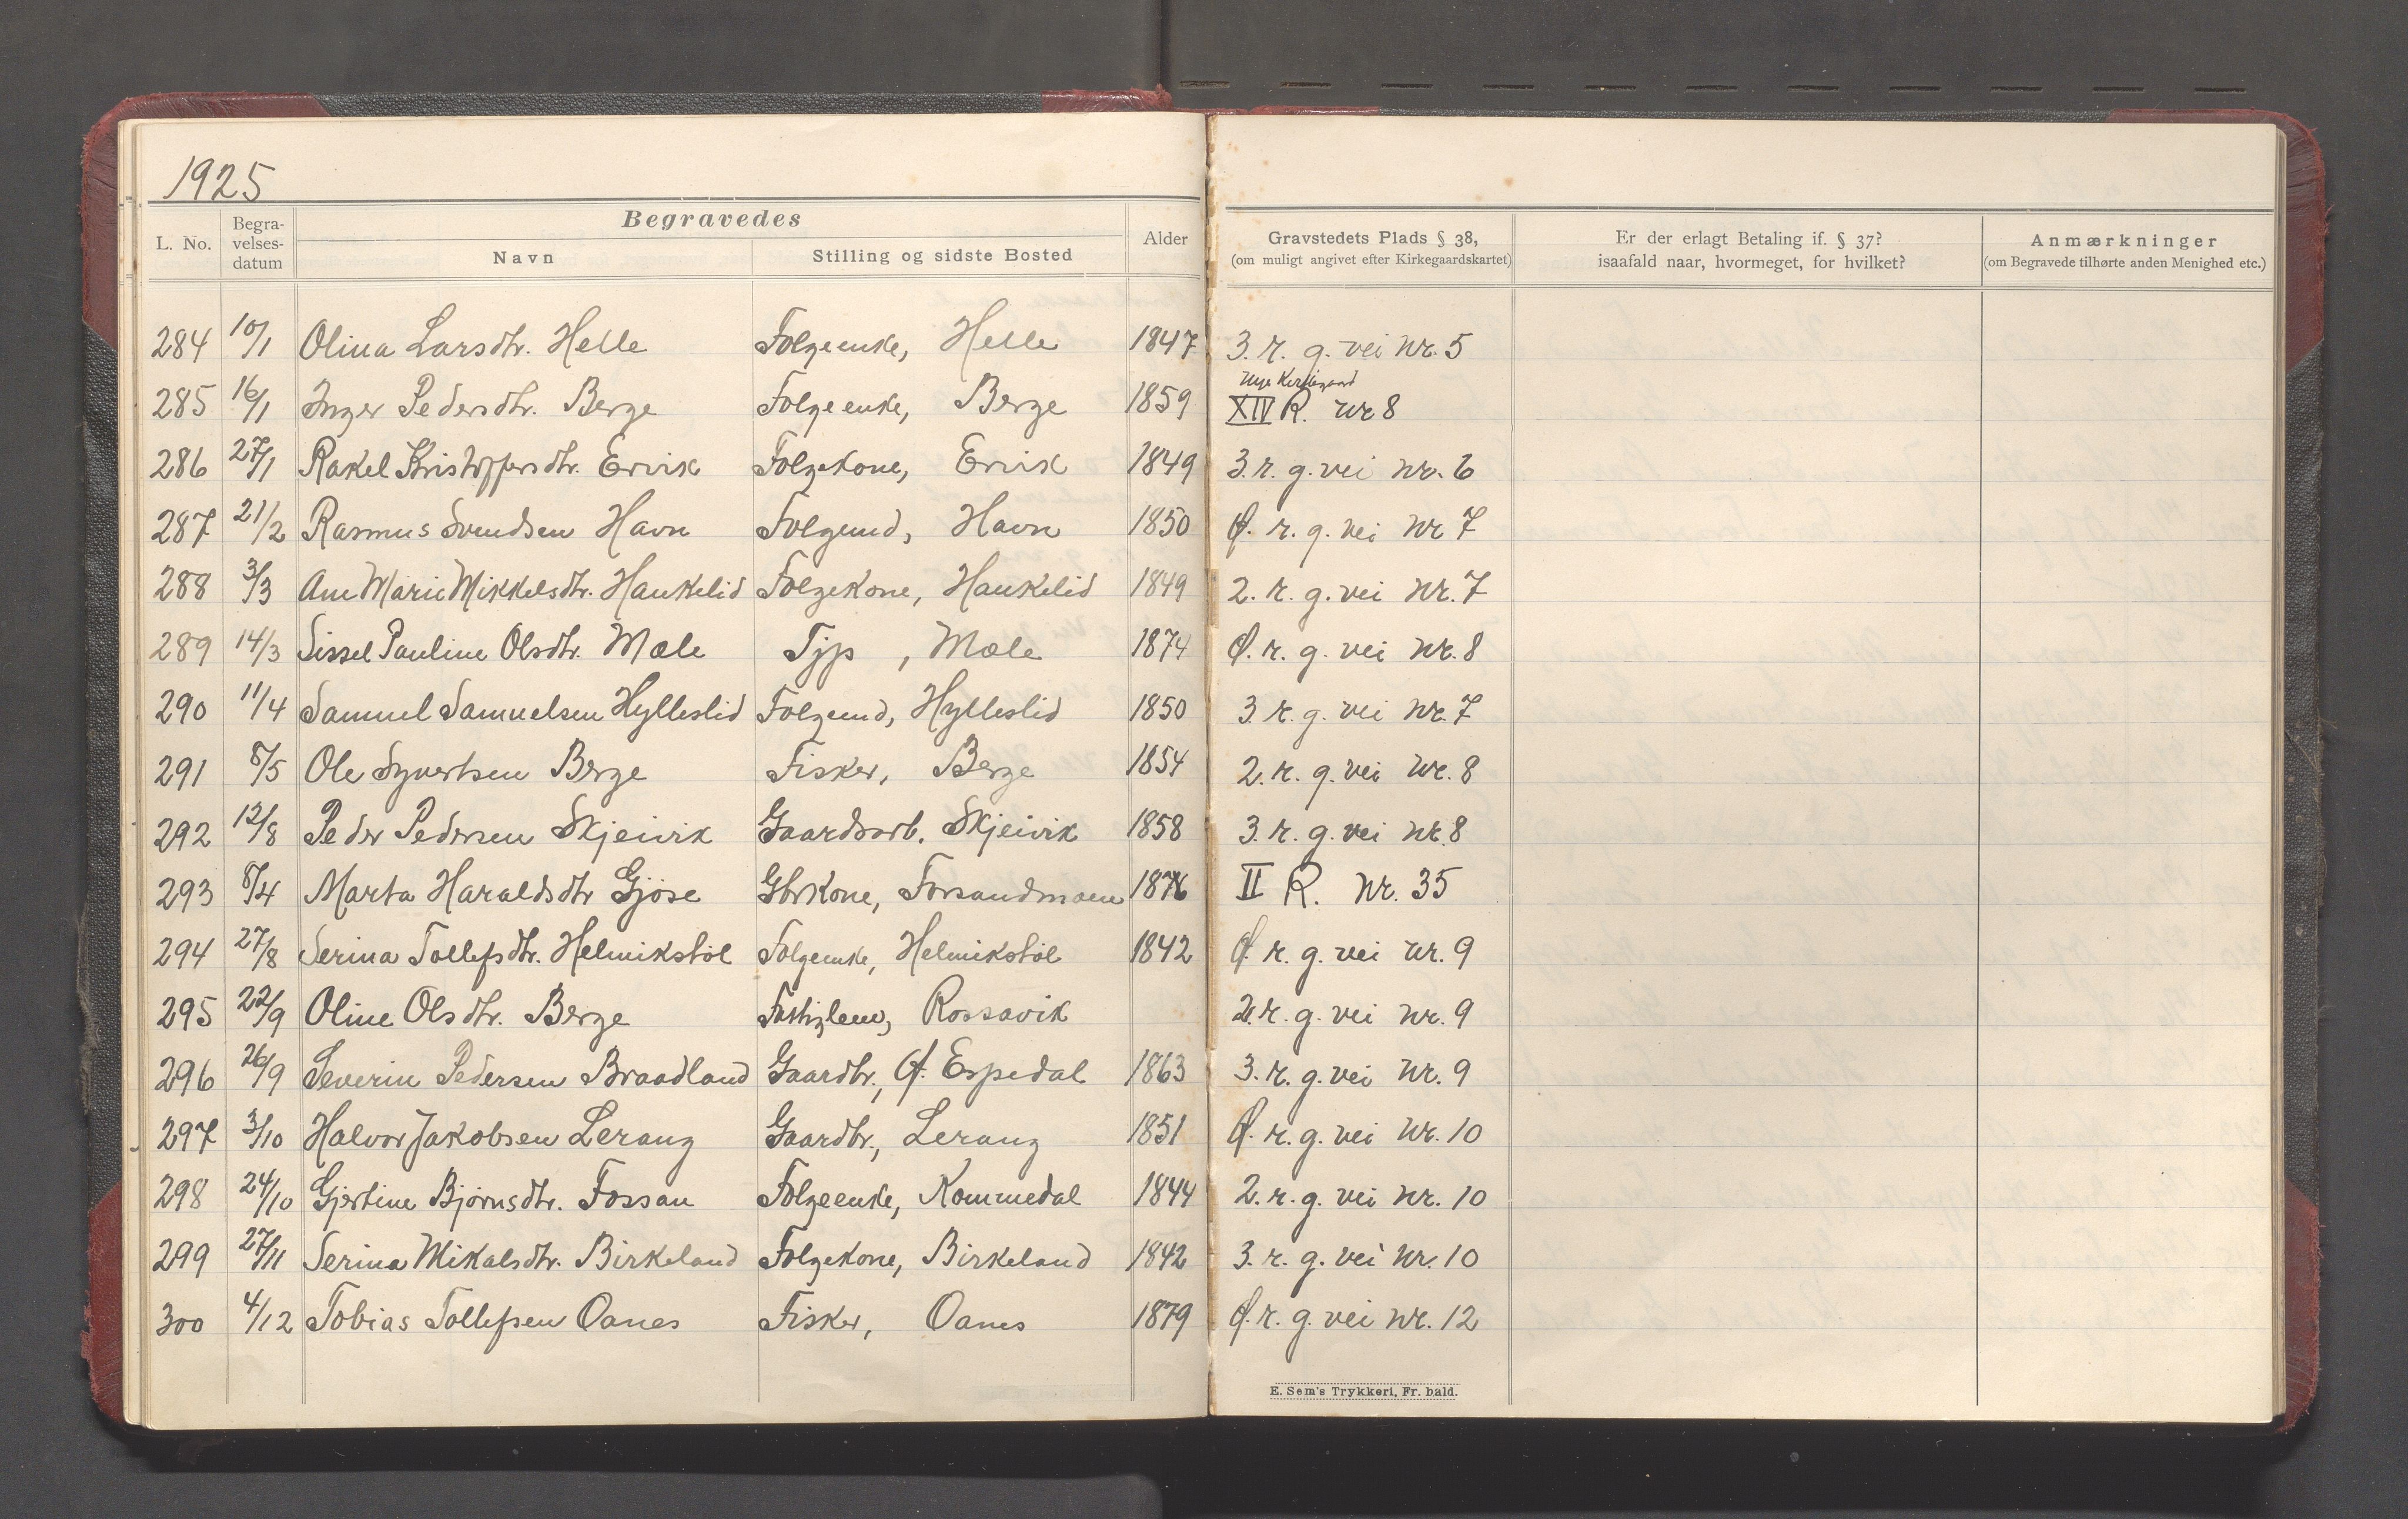 1925
L. No. Begra- velses- datum Begravedes Navn Stilling og sidste Bosted Alder Gravstedets Plads § 38, (om muligt angivet efter Kirkegaardskartet) Er der erlagt Betaling if. § 37? isaafald naar, hvormeget, for hvilket? Anmærkninger (om Begravede tilhørte anden Menighed etc.)
284 10/1 Olina Larsdtr. Helle Folgeenke, Helle 1847 3. r. g. vei nr. 5
285 16/1 Inger Pedersdtr. Berge Folgeenke, Berge 1859 Nye Kirkegaard XIV R. nr 8
286 27/1 Rakel Kristoffersdtr. Ervik Folgekone, Ervik 1849 3. r. g. vei nr. 6
287 21/2 Rasmus Svendsen Havn Folgemd, Havn 1850 Ø. r. g. vei nr 7
288 3/3 Ane Marie Mikkelsdtr. Haukelid Folgekone, Haukelid 1849 2. r. g. vei nr. 7
289 14/3 Sissel Pauline Olsdtr. Mæle Tjp, Mæle 1874 Ø. r. g. vei nr. 8
290 11/4 Samuel Samuelsen Hylleslid Folgemd, Hylleslid 1850 3 r. g. vei nr. 7
291 8/5 Ole Syvertsen Berge Fisker, Berge 1854 2. r. g. vei nr. 8
292 12/8 Peder Pedersen Skjeivik Gaardsarb. Skjeivik 1858 3. r. g. vei nr. 8
293 8/4 Marta Haraldsdtr Gjöse Gbrkone, Forsandmoen 1876 II R. nr. 35
294 27/8 Serina Tollefsdtr. Helmikstöl Folgeenke, Helmikstöl 1842 Ø. r. g. vei nr. 9
295 22/9 Oline Olsdtr. Berge Fattiglem, Rossavik 2. r. g. vei nr. 9
296 26/9 Severin Pedersen Braadland Gaardbr., Ø. Espedal 1863 3. r. g. vei nr. 9
297 3/10 Halvor Jakobsen Lerang Gaardbr., Lerang 1851 Ø. r. g. vei nr. 10
298 24/10 Gjertine Bjørnsdtr. Fossan Folgeenke, Kommedal 1844 2. r. g. vei nr. 10
299 27/11 Serina Mikalsdtr. Birkeland Folgekone, Birkeland 1842 3. r. g. vei nr. 10
300 4/12 Tobias Tollefsen Oanes Fisker, Oanes 1879 Ø. r. g. vei nr. 12
E. Sem's Trykkeri, Fr. hald.